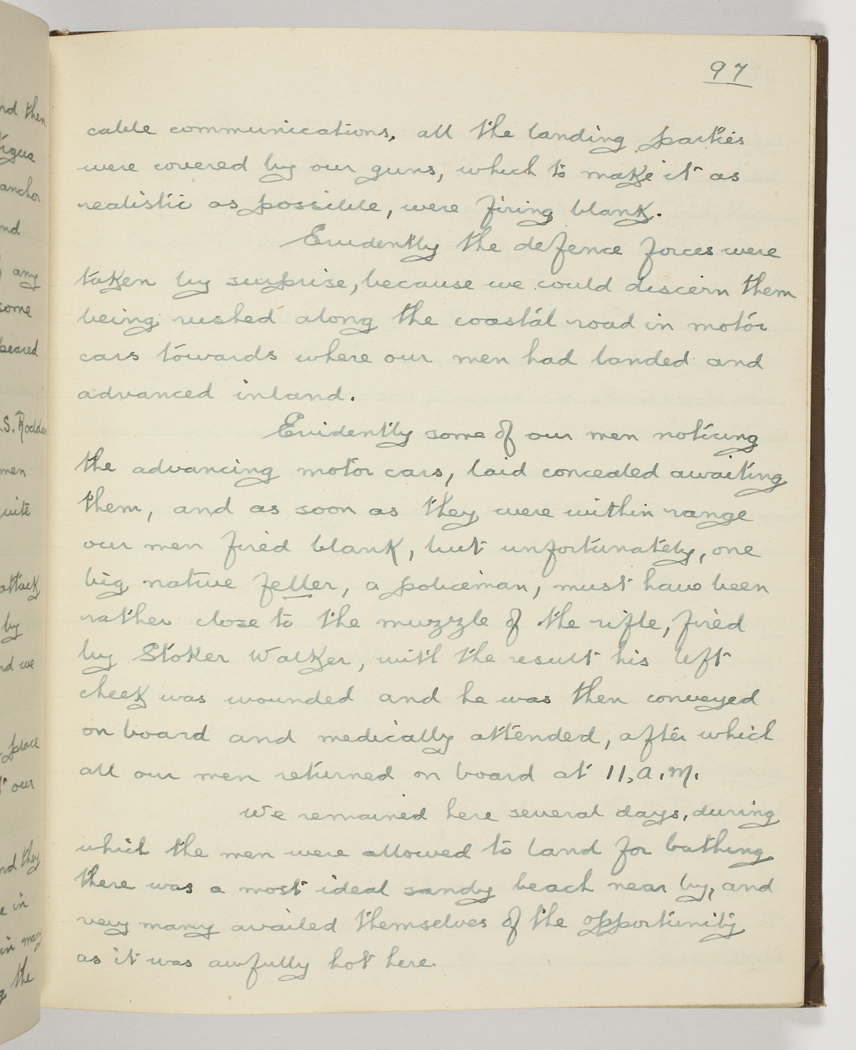 97
cable communications, all the landing parties
were covered by our guns, which to make it as
realistic as possible, were firing blank.
Evidently the defence forces were
taken by surprise, because we could discern them
being rushed along the coastal road in motor
cars towards where our men had landed and
advanced inland.
Evidently some of our men noticing
the advancing motor cars, laid concealed awaiting
them, and as soon as they were within range
our men fired blank, but unfortunately, one
big native feller, a policeman, must have been
rather close to the muzzle of the rifle, fired
by Stoker Walker, with the result his left
cheek was wounded and he was then conveyed
on board and medically attended, after which
all our men returned on board at 11, a.m.
We remained here several days, during
which the men were allowed to land for bathing
there was a most ideal sandy beach near by, and
very many availed themselves of the opportunity
as it was awfully hot here.
nd then
anchor
nd
any
some
peared
.S. Rodde
men
uite
attack
by
nd we
place
our
nd they
e in
in may
the